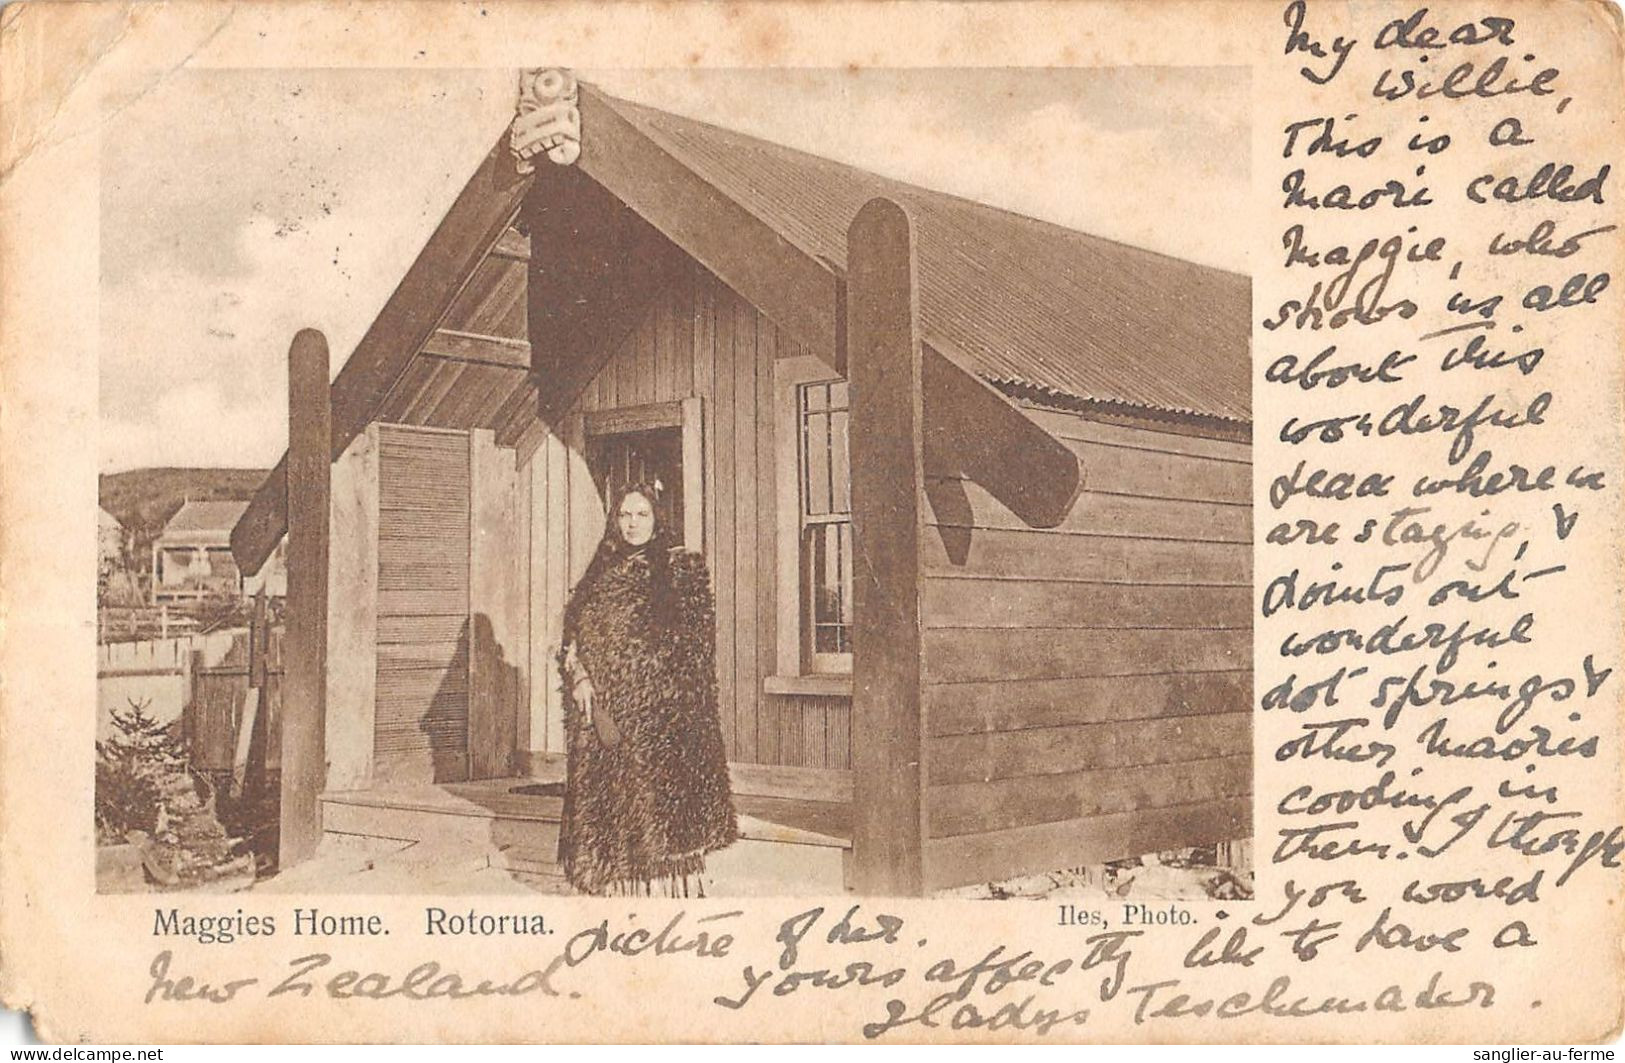 My dear
Willie,
This is a
Maori called
Maggie, who
shows us all
about this
wonderful
where we
are staying, &
points out
wonderful
hot springs &
other Maoris
cooking in
them. I thought
you would
like to have a
picture of her.
Yours affectly
Gladys Teschemaker.
New Zealand.
Maggies Home. Rotorua.
Iles, Photo.
sanglier-au-ferme